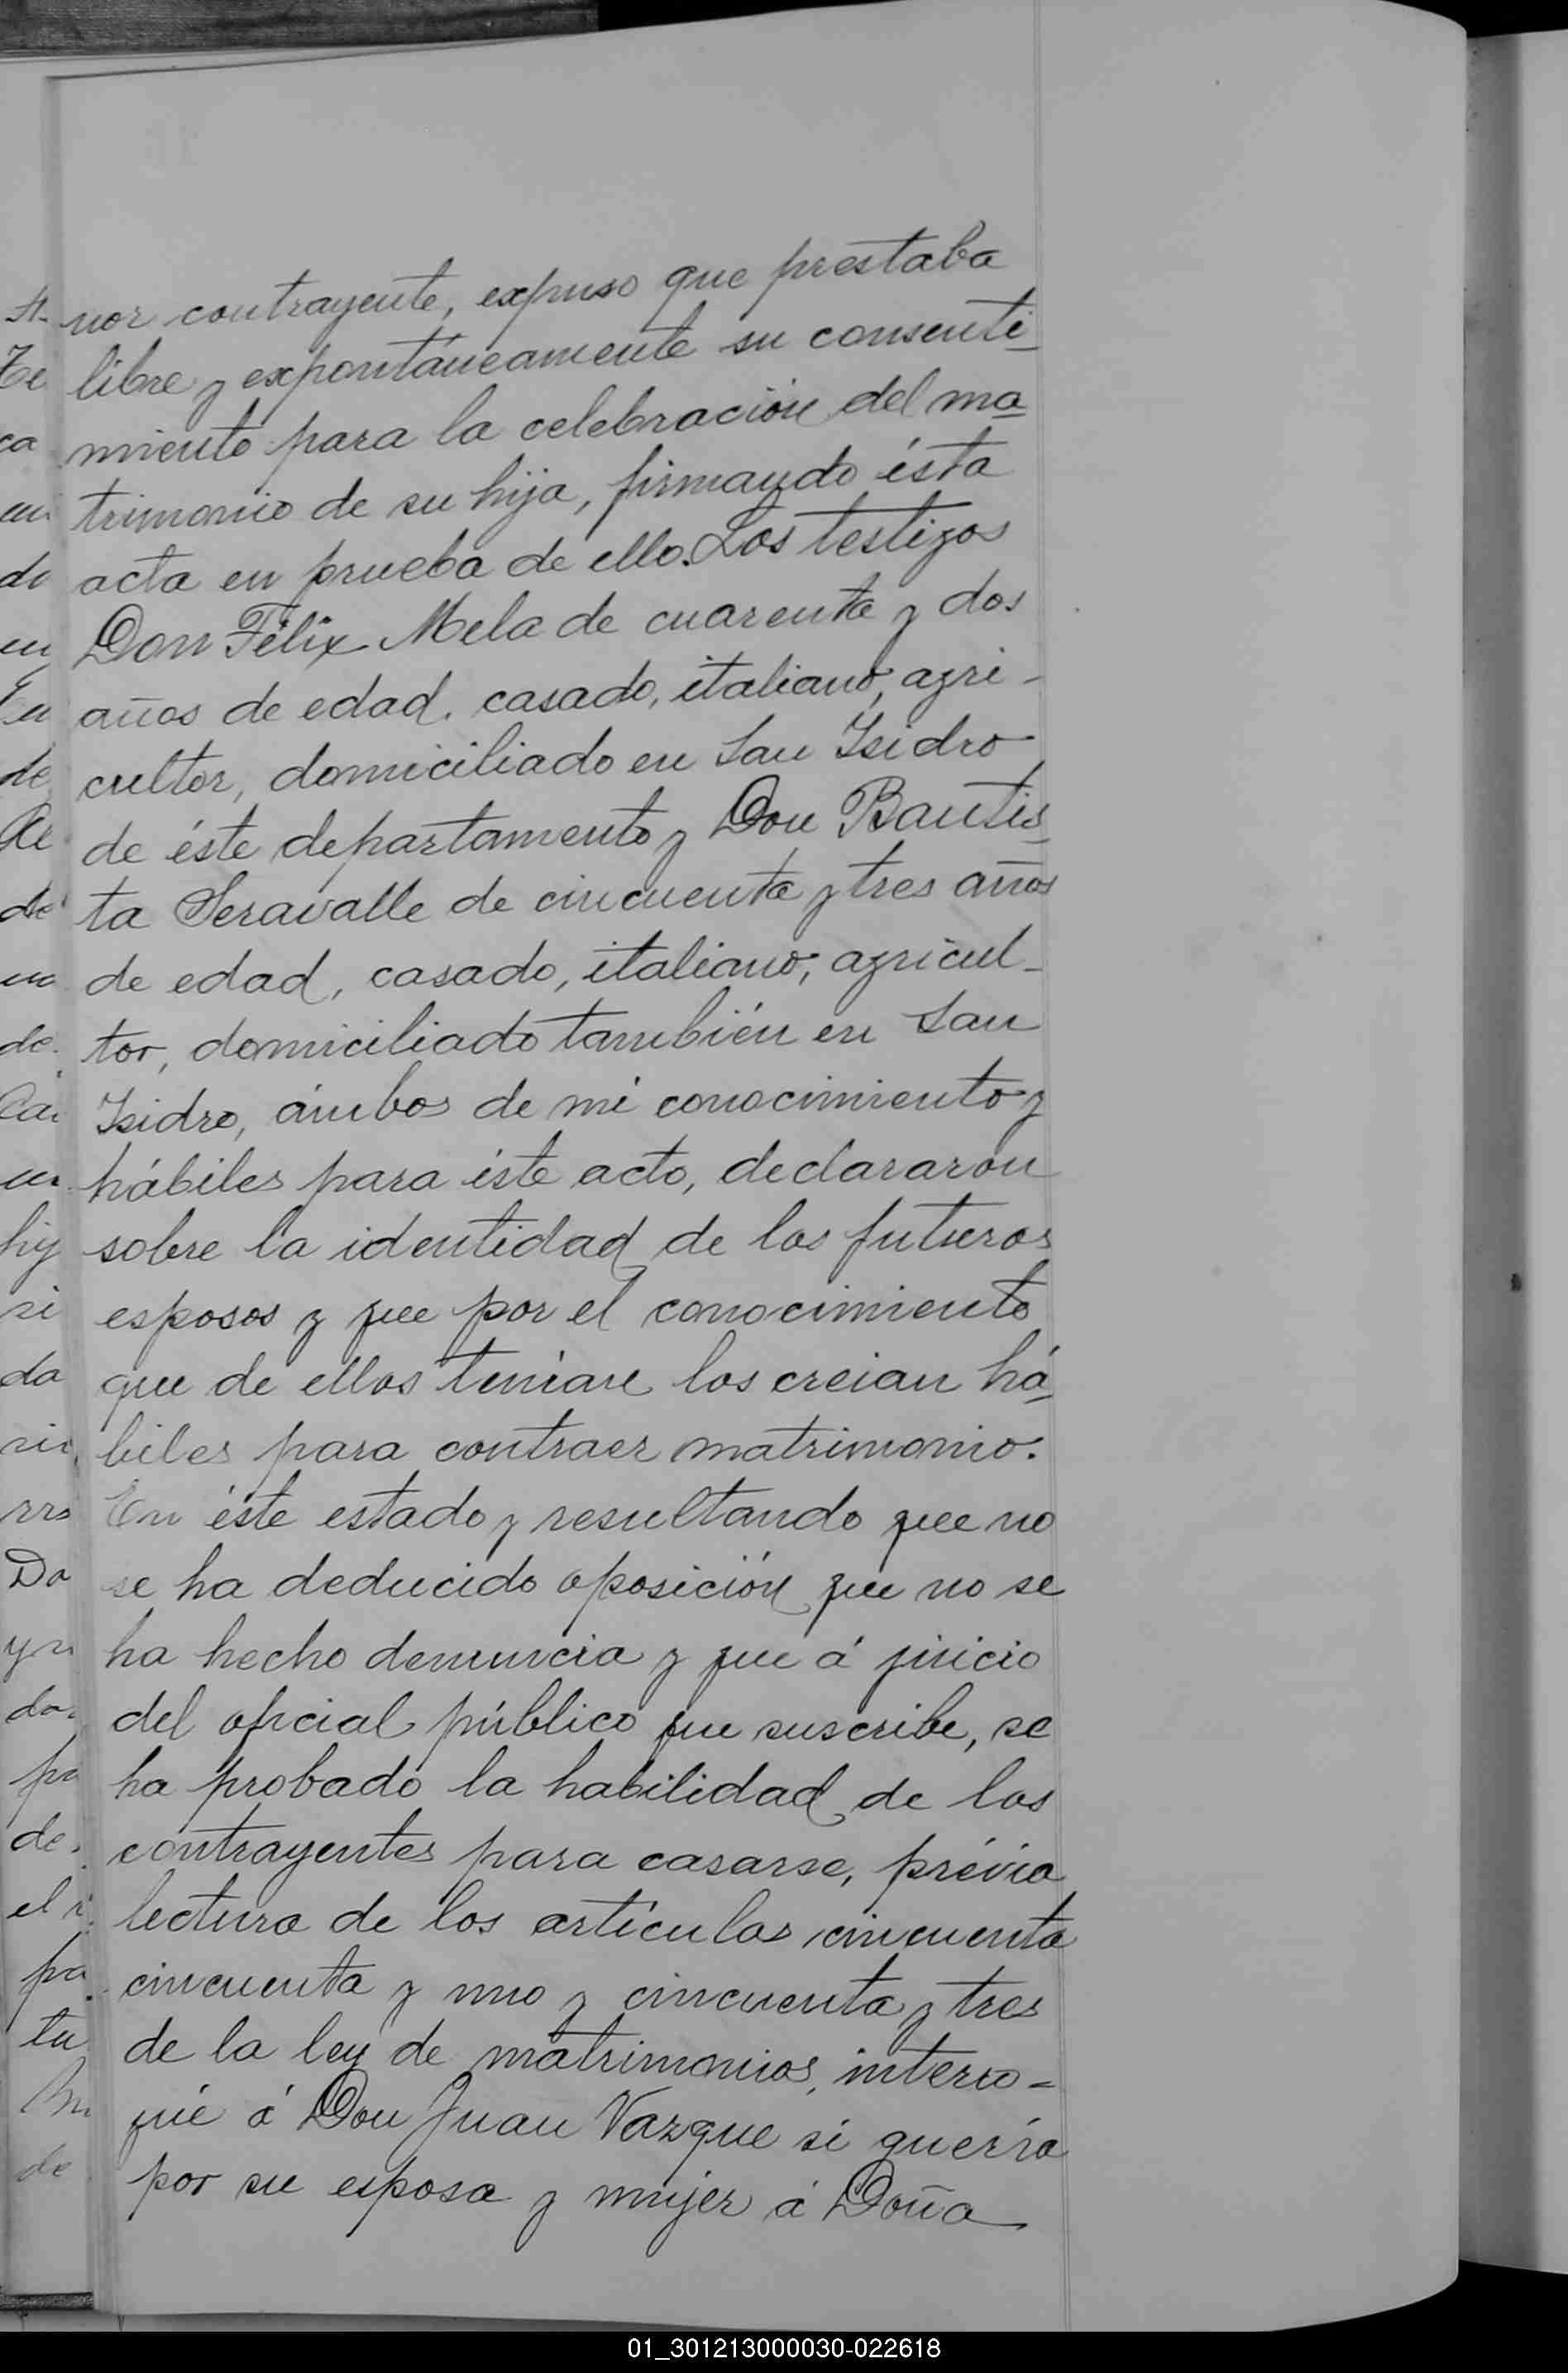 nor contrayente, expuso que prestaba
libre y expontáneamente su consenti_
miento para la celebración del ma_
trimonio de su hija, firmando ésta
acta en prueba de ello. Los testigos
Don Félix Mela de cuarenta y dos
años de edad. casado, italiano, agri-
cultor, domiciliado en San Isidro
de éste departamento y Don Bautis_
ta Seravalle de cincuenta y tres años
de edad, casado, italiano, agricul_
tor, domiciliado también en San
Isidro, ámbos de mi conocimiento y
hábiles para éste acto, declararon
sobre la identidad de los futuros
esposos y que por el conocimiento
que de ellos tenían los creian há_
biles para contraer matrimonio.
En éste estado y resultando que no
se ha deducido oposición que no se
ha hecho denuncia y que á juicio
del oficial público que suscribe, se
ha probado la habilidad de los
contrayentes para casarse, prévia
lectura de los artículos cincuenta
cincuenta y uno y cincuenta y tres
de la ley de matrimonios, interro=
gué á Don Juan Vazque si quería
por su esposa y mujer á Doña
01_301213000030-022618